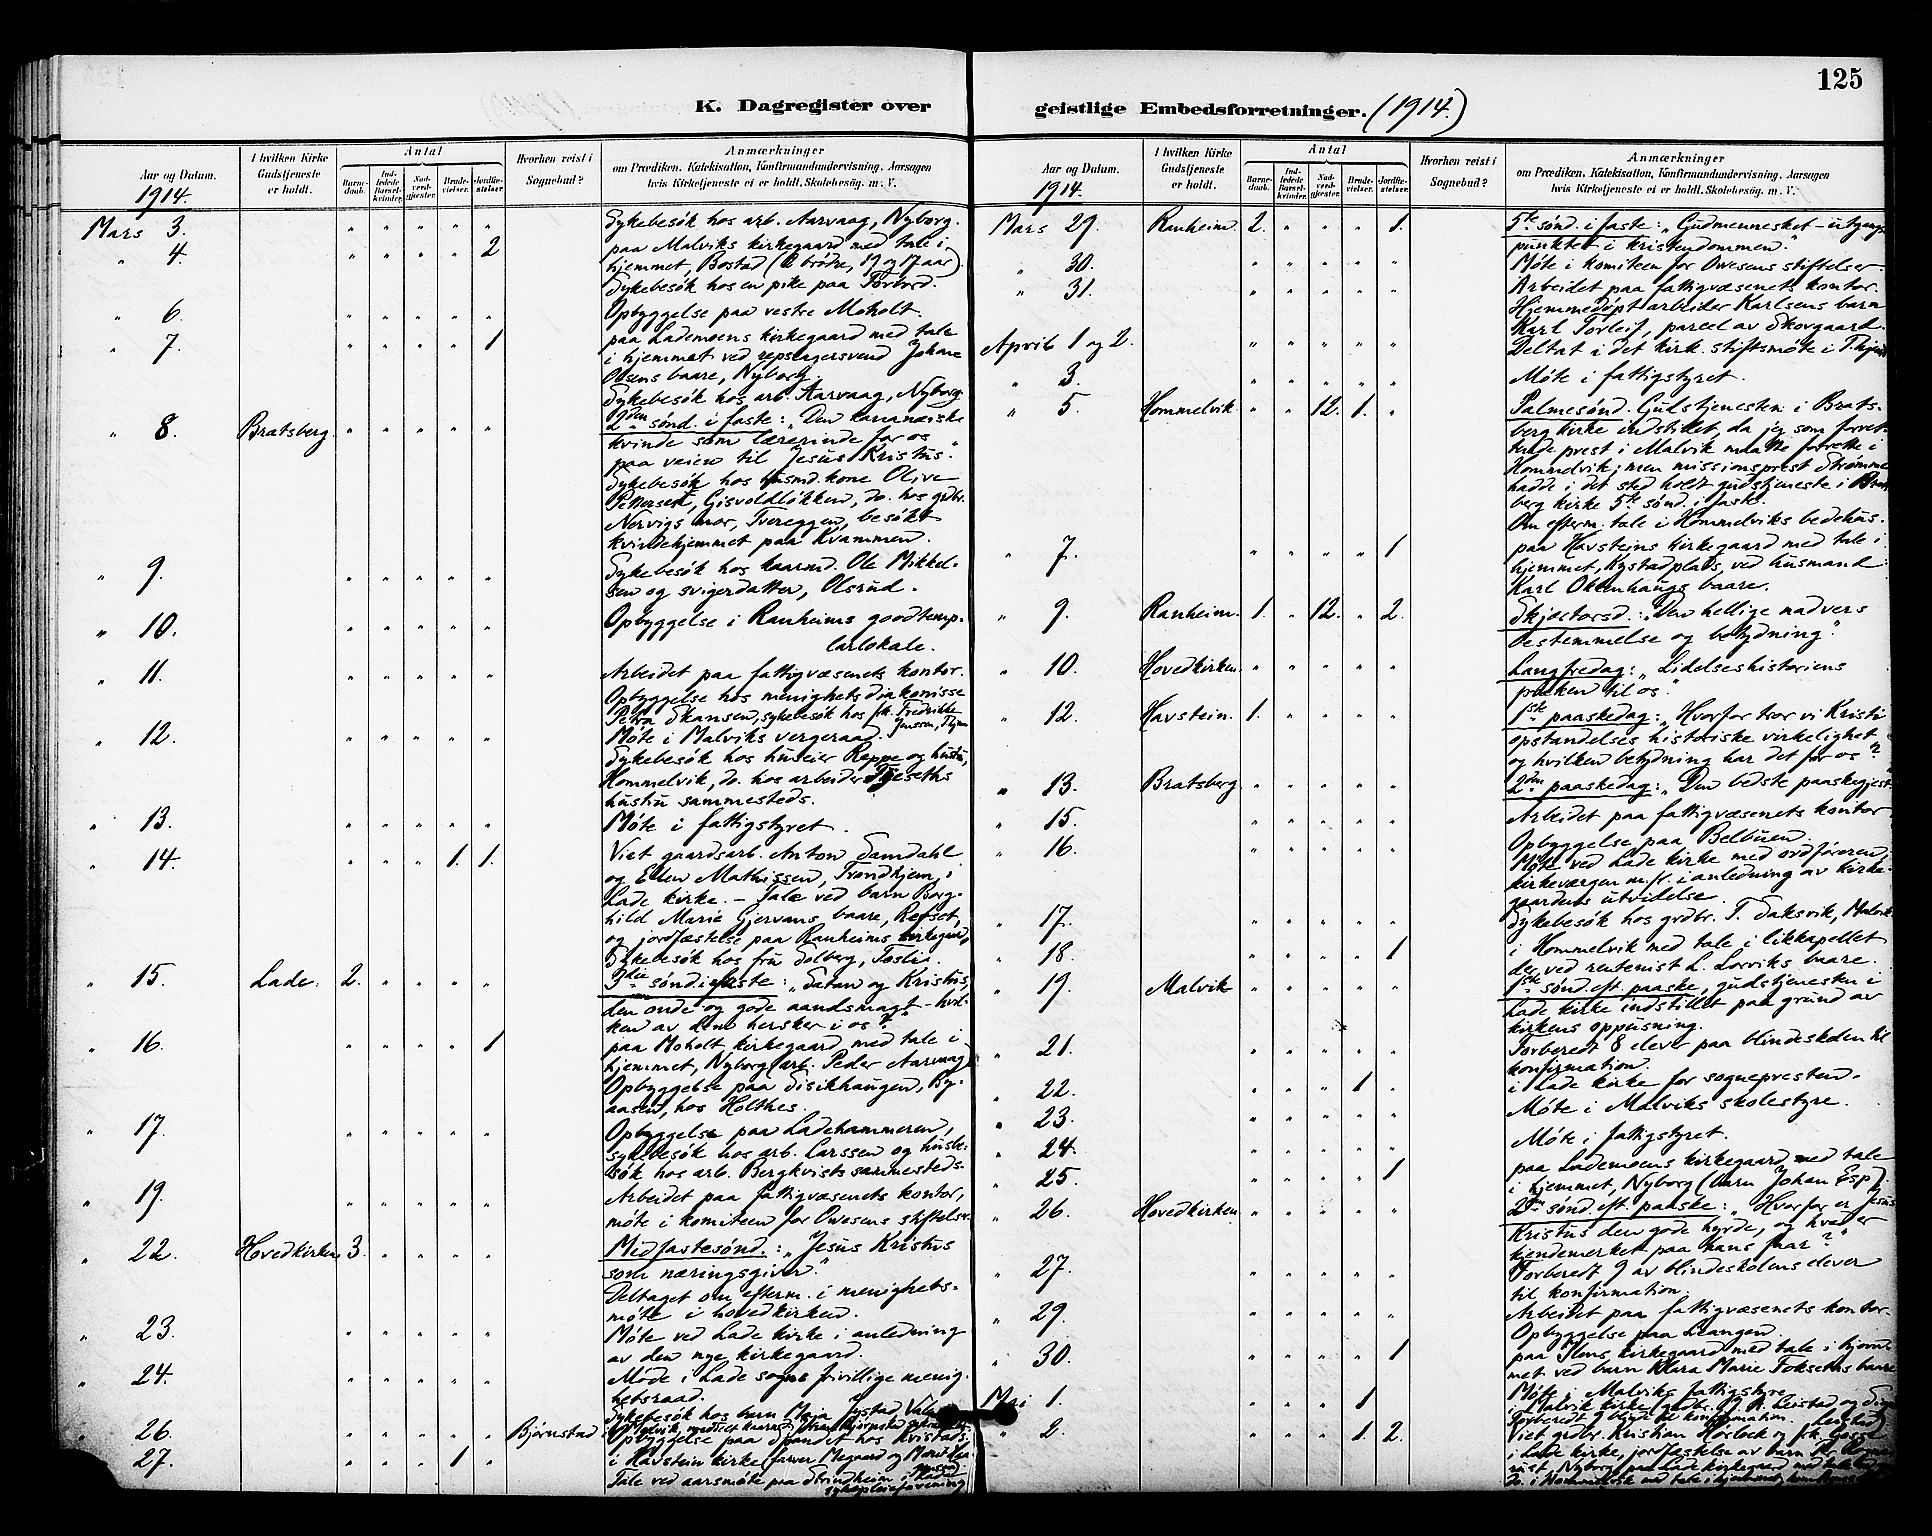 125
K. Dagregister over geistlige Embedsforretninger. (1914.)
Aar og Datum.
1914.
I hvilken Kirke Gudstjeneste er holdt.
Antal
Barnedaab. Indledede Barselkvinder. Nadverdgjester. Brudevielser. Jordfæstelser.
Hvorhen reist i Sognebud?
Anmærkninger
om Prædiken, Katekisation, Konfirmandundervisning, Aarsagen
hvis Kirketjeneste ei er holdt. Skolebesøg. m. V.
Mars 3. " " " " " Sykebesök hos arb. Aarvaag, Nyborg.
" 4. " " " " 2 paa Malviks kirkegaard med tale i
hjemmet, Bostad (2 brödre, 19 og 17 aar).
Sykebesök hos en pike paa Forbord.
" 6. " " " " " Opbyggelse paa vestre Moholt.
" 7. " " " " 1 paa Lademoens kirkegaard med tale
i hjemmet ved repslagersvend Johan
Olsens baare, Nyborg.
Sykebesök hos arb. Aarvaag, Nyborg.
" 8. Bratsberg. " " " " " 2den sönd. i faste: "Den kananæiske
kvinde som lærerinde for os
paa veien til Jesus Kristus."
Sykebesök hos husmd. kone Olive
Pettersen, Gisvoldlökken, do. hos grdbr.
Nervigs mor, Tvereggen, besökt
kvindehjemmet paa Kvammen.
" 9. " " " " " Sykebesök hos kaarmd. Ole Mikkel-
sen og svigerdatter, Olsrud.
" 10. " " " " " Opbyggelse i Ranheims goodtemp-
larlokale.
" 11. " " " " " Arbeidet paa fattigvæsenets kontor.
Opbyggelse hos menighetsdiakonisse
Petra Skansen, sykebesök hos frk. Fredrikke
Jenssen, Thjem
" 12. " " " " " Möte i Malviks vergeraad.
Sykebesök hos huseier Reppe og hustru,
Hommelvik, do. hos arbeider
hustru sammesteds.
" 13. " " " " " Möte i fattigstyret.
" 14. " " " 1. 1. Viet gaardsarb. Anton Samdahl
og Ellen Mathissen, Trondhjem, i
Lade kirke. – Tale ved barn Borg-
hild Marie Gjervans baare, Refset,
og jordfæstelse paa Ranheims kirkegaard,
Sykebesök hos fru Solberg, Toslia.
" 15. Lade. 2. " " " " 3die sönd. i faste: "Satan og Kristus,
den onde og gode aandsmagt – hvil-
ken av dem hersker i os?"
" 16. " " " " 1 paa Moholt kirkegaard med tale i
hjemmet, Nyborg (arb. Peder Aarvaag)
Opbyggelse paa Sisikhaugen, By-
aasen, hos Holthes.
" 17. " " " " " Opbyggelse paa Ladehammeren,
sykebesök hos arb. Larssen og husbe-
sök hos arb. Bergkvist sammesteds.
" 19. " " " " " Arbeidet paa fattigvæsenets kontor,
möte i komiteen for Owesens stiftelser.
" 22. Hovedkirken 3. " " " " Midfastesönd.: "Jesus Kristus
som næringsgiver."
Deltaget om efterm. i menighets-
möte i hovedkirken.
" 23. " " " " " Möte ved Lade kirke i anledning
av den nye kirkegaard.
" 24. " " " " " Möde i Lade sogns frivillige menig-
hetsraad.
Sykebesök hos barn Maja Jystad,
" 26. " " " " " Bjørnstad i Malvik,
Opbyggelse paa Spandet hos Kristads.
" 27. " " " 1 " i Havstein kirke (farver Megaard og
Tale ved aarsmöte paa Strindheim i Lade
sykepleieforening
Aar og Datum.
1914.
I hvilken Kirke Gudstjeneste er holdt.
Antal
Barnedaab. Indledede Barselkvinder. Nadverdgjester. Brudevielser. Jordfæstelser.
Hvorhen reist i Sognebud?
Anmærkninger
om Prædiken, Katekisation, Konfirmandundervisning, Aarsagen
hvis Kirketjeneste ei er holdt. Skolebesøg. m. V.
Mars 29. Ranheim. 2. " " " 1. 5te sönd. i faste: "Gudmennesket – utgangs-
punktet i kristendommen."
" 30. " " " " " Möte i komiteen for Owesens stiftelser.
" 31. " " " " " Arbeidet paa fattigvæsenets kontor.
Hjemmedöpt arbeider Karlsens barn
Karl Torleif, parcel av Skovgaard.
April 1 og 2. " " " " " Deltat i det kirk. stiftsmöte i T.hjem
" 3. " " " " " Möte i fattigstyret.
" 5. Hommelvik. " " 12. 1. " Palmesönd. Gudstjenesten i Brats-
berg kirke indstillet, da jeg som forret-
tende prest i Malvik maatte forrette i
Hommelvik; men missionsprest Strömme
hadde i det sted holdt gudstjeneste i Brats-
berg kirke 5te sönd. i faste.
Om efterm. tale i Hommelviks bedehus.
" 7. " " " " 1 paa Havsteins kirkegaard med tale i
hjemmet, Bystadplads, ved husmand
Karl Okkenhaugs baare.
" 9. Ranheim. 1. " 12. " 2. Skjærtorsd.: "Den hellige nadvers
bestemmelse og betydning."
" 10. Hovedkirken. " " " " " Langfredag: "Lidelseshistoriens
præken til os."
" 12. Havstein. 1. " " " " 1ste paaskedag: "Hvorfor tror vi Kristi
opstandelses historiske virkelighet
og hvilken betydning har det for os?"
" 13. Bratsberg. " " " " " 2den paaskedag: "Den bedste paaskegjest
" 15. " " " " " Arbeidet paa fattigvæsenets kontor
Opbyggelse paa Belbuen.
" 16. " " " " " Möte ved Lade kirke med ordföreren,
kirkevergen m. fl. i anledning av kirke-
gaardens utvidelse.
" 17. " " " " " Sykebesök hos grdbr. T. Saksvik, Malvik
" 18. " " " " 1 i Hommelvik med tale i likkapellet
der ved rentenist L. Lorviks baare.
" 19. Malvik 1ste sönd. eft. paaske, gudstjenesten i
Lade kirke indstillet paa grund av
kirkens oppusning.
" 21. " " " " " Forberedt 8 elever paa blindeskolen til
konfirmation.
" 22. " " " 1 " i Lade kirke for sognepresten.
" 23. " " " " " Möte i Malviks skolestyre.
" 24. " " " " " Möte i fattigstyret.
" 25. " " " " 1 paa Lademoens kirkegaard med tale
i hjemmet, Nyborg (barn Johan Esp).
" 26. Hovedkirken " " " " " 2den sönd. eft. paaske: "Hvorfor er Jesus
Kristus den gode hyrde, og hvad er
kjendemerket paa hans faar?"
" 27. " " " " " Forberedt 9 av blindeskolens elever
til konfirmation.
" 29. " " " " " Arbeidet paa fattigvæsenets kontor.
Opbyggelse paa Leangen.
" 30. " " " " 1 paa Ilens kirkegaard med tale i hjem-
met ved barn Klara Marie Foksets baare
Möte i Malviks fattigstyre.
Mai 1. " " " 1 " i Malvik kirke
Forberedt 9 blinde til konfirmation.
" 2. " " " 1. 2. Viet grdbr. Kristian Horlock og frk.
i Lade kirke, jordfæstelse av barn
Nyborg, paa Lade kirkegaard med tale
Do. i Hommelvik med tale i hjemmet,